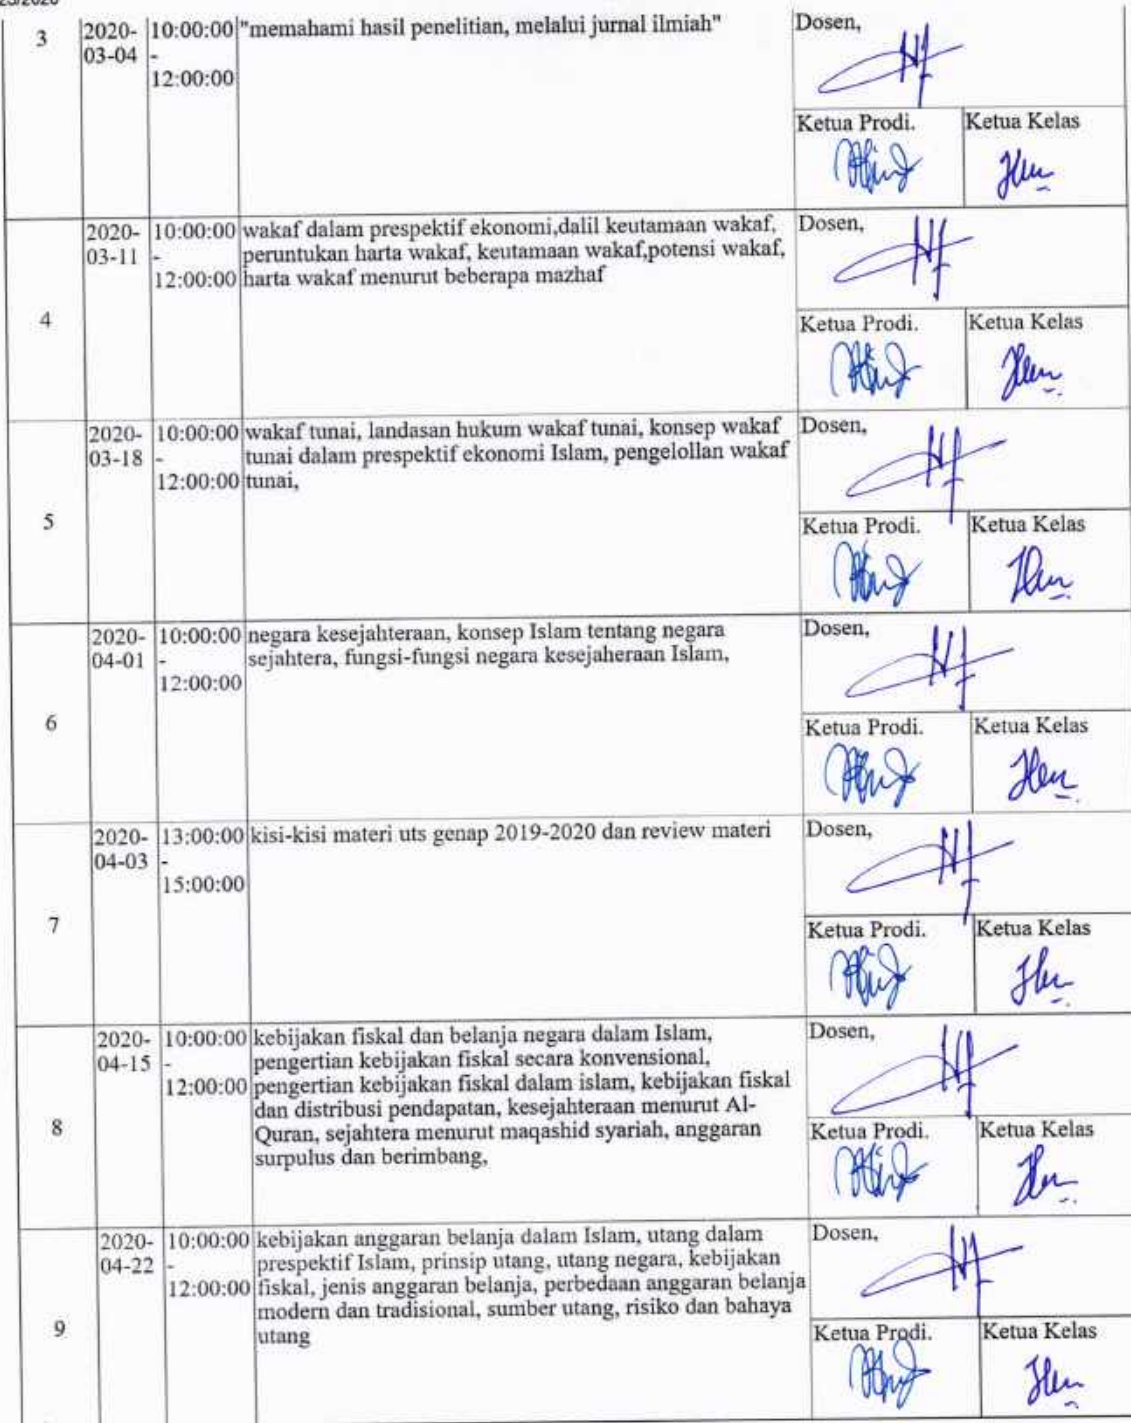 3
2020-
03-04
10:00:00
-
12:00:00
"memahami hasil penelitian, melalui jurnal ilmiah"
Dosen,
Ketua Prodi.
Ketua Kelas
4
2020-
03-11
10:00:00
-
12:00:00
wakaf dalam prespektif ekonomi,dalil keutamaan wakaf,
peruntukan harta wakaf, keutamaan wakaf,potensi wakaf,
harta wakaf menurut beberapa mazhaf
Dosen,
Ketua Prodi.
Ketua Kelas
5
2020-
03-18
10:00:00
-
12:00:00
wakaf tunai, landasan hukum wakaf tunai, konsep wakaf
tunai dalam prespektif ekonomi Islam, pengelollan wakaf
tunai,
Dosen,
Ketua Prodi.
Ketua Kelas
6
2020-
04-01
10:00:00
-
12:00:00
negara kesejahteraan, konsep Islam tentang negara
sejahtera, fungsi-fungsi negara kesejaheraan Islam,
Dosen,
Ketua Prodi.
Ketua Kelas
7
2020-
04-03
13:00:00
-
15:00:00
kisi-kisi materi uts genap 2019-2020 dan review materi
Dosen,
Ketua Prodi.
Ketua Kelas
8
2020-
04-15
10:00:00
-
12:00:00
kebijakan fiskal dan belanja negara dalam Islam,
pengertian kebijakan fiskal secara konvensional,
pengertian kebijakan fiskal dalam islam, kebijakan fiskal
dan distribusi pendapatan, kesejahteraan menurut Al-
Quran, sejahtera menurut maqashid syariah, anggaran
surpulus dan berimbang,
Dosen,
Ketua Prodi.
Ketua Kelas
9
2020-
04-22
10:00:00
-
12:00:00
kebijakan anggaran belanja dalam Islam, utang dalam
prespektif Islam, prinsip utang, utang negara, kebijakan
fiskal, jenis anggaran belanja, perbedaan anggaran belanja
modern dan tradisional, sumber utang, risiko dan bahaya
utang
Dosen,
Ketua Prodi.
Ketua Kelas